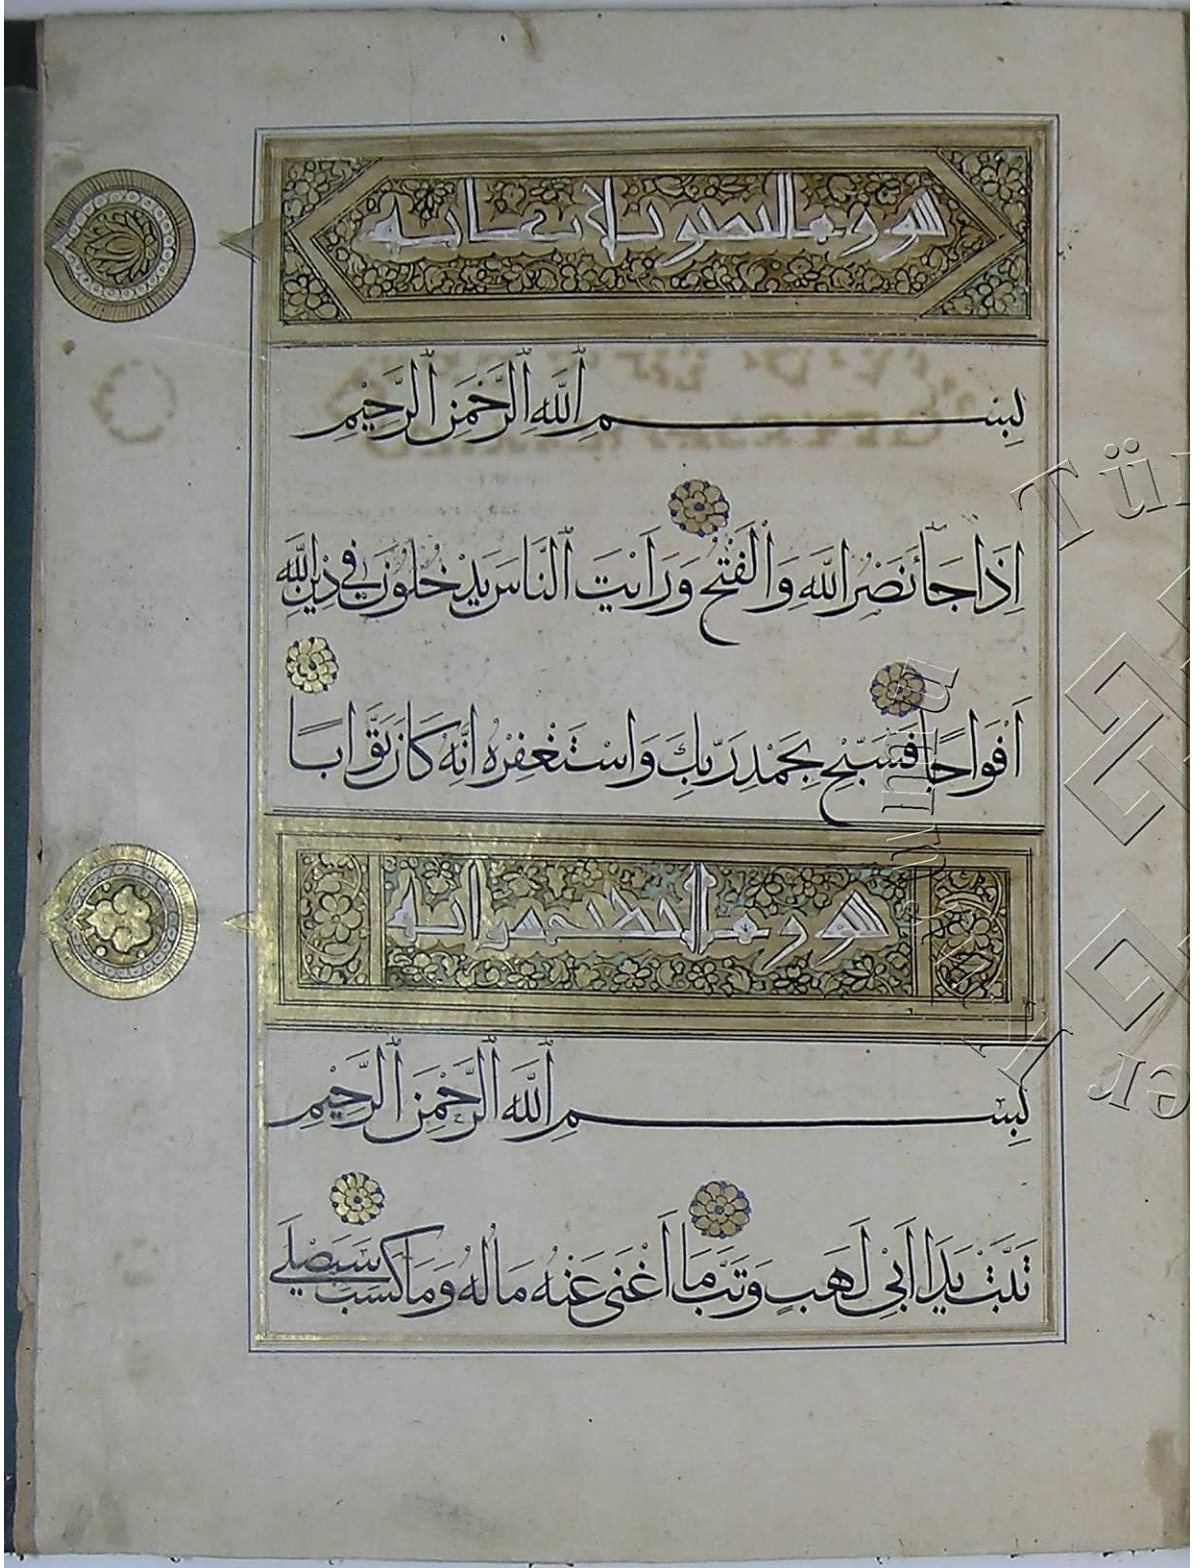 سورة النصر ثلاث ايات
بِسْمِ اللَّهِ الرَّحْمٰنِ الرَّحِيمِ
اِذَا جَآءَ نَصْرُ اللَّهِ وَالْفَتْحُ وَرَاَيْتَ النَّاسَ يَدْخُلُونَ فِي دِينِ اللَّهِ
اَفْوَاجًا فَسَبِّحْ بِحَمْدِ رَبِّكَ وَاسْتَغْفِرْهُ اِنَّهُ كَانَ تَوَّابًا
سورة
بِسْمِ اللَّهِ الرَّحْمٰنِ الرَّحِيمِ
تَبَّتْ يَدَا اَبِي لَهَبٍ وَتَبَّ مَا اَغْنٰى عَنْهُ مَالُهُ وَمَا كَسَبَ سَيَصْلٰى